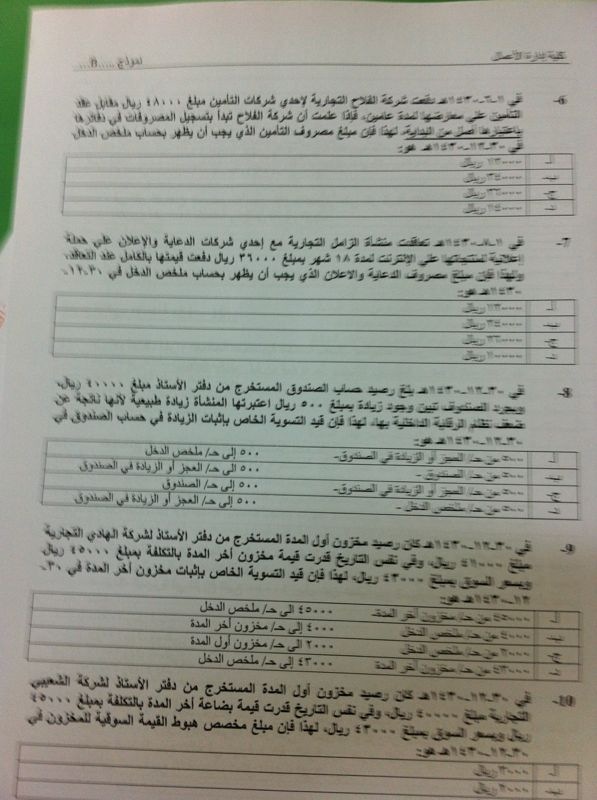 كلية إدارة الأعمال
نموذج .....B...
6- في ١-٦-١٤٣٠هـ دفعت شركة الفلاح التجارية لإحدي شركات التأمين مبلغ ٤٨٠٠٠ ريال مقابل عقد
التأمين على معارضها لمدة عامين، فإذا علمت أن شركة الفلاح تبدأ بتسجيل المصروفات في دفاترها
باعتبارها أصل من البداية، لهذا فإن مبلغ مصروف التأمين الذي يجب أن يظهر بحساب ملخص الدخل
في ٣٠-١٢-١٤٣٠هـ هو:
أ- ريال
ب- ريال
ج- ريال
د- ريال
7- في ١-٧-١٤٣٠هـ تعاقدت منشأة الزامل التجارية مع إحدي شركات الدعاية والإعلان علي حملة
إعلانية لمنتجاتها علي الإنترنت لمدة ١٨ شهر بمبلغ ٣٦٠٠٠ ريال دفعت قيمتها بالكامل عند التعاقد،
ولهذا فإن مبلغ مصروف الدعاية والاعلان الذي يجب أن يظهر بحساب ملخص الدخل في ٣٠-١٢-
١٤٣٠هـ هو:
أ- ريال
ب- ريال
ج- ريال
د- ريال
8- في ٣٠-١٢-١٤٣٠هـ بلغ رصيد حساب الصندوق المستخرج من دفتر الأستاذ مبلغ ريال،
وبجرد الصندوق تبين وجود زيادة بمبلغ ٥٠٠ ريال اعتبرتها المنشأة زيادة طبيعية لأنها ناتجة عن
ضعف نظام الرقابة الداخلية بها، لهذا فإن قيد التسوية الخاص بإثبات الزيادة في حساب الصندوق في
٣٠-١٢-١٤٣٠هـ هو:
أ- ٥٠٠ من حـ/ العجز أو الزيادة في الصندوق- ٥٠٠ إلى حـ/ ملخص الدخل
ب- ٥٠٠ من حـ/ الصندوق - ٥٠٠ إلى حـ/ العجز أو الزيادة في الصندوق
ج- ٥٠٠ من حـ/ العجز أو الزيادة في الصندوق- ٥٠٠ إلى حـ/ الصندوق
د- ٥٠٠ من حـ/ ملخص الدخل - ٥٠٠ إلى حـ/ العجز أو الزيادة في الصندوق
9- في ٣٠-١٢-١٤٣٠هـ كان رصيد مخزون أول المدة المستخرج من دفتر الأستاذ لشركة الهادي التجارية
مبلغ ٤١٠٠٠ ريال، وفي نفس التاريخ قدرت قيمة مخزون أخر المدة بالتكلفة بمبلغ ٤٥٠٠٠ ريال
وبسعر السوق بمبلغ ٤٣٠٠٠ ريال، لهذا فإن قيد التسوية الخاص بإثبات مخزون أخر المدة في ٣٠-
١٢-١٤٣٠هـ هو:
أ- ٤٥٠٠٠ من حـ/ مخزون أخر المدة ٤٥٠٠٠ إلى حـ/ ملخص الدخل
ب- ٤٠٠٠ من حـ/ ملخص الدخل ٤٠٠٠ إلى حـ/ مخزون أخر المدة
ج- ٢٠٠٠ من حـ/ ملخص الدخل ٢٠٠٠ إلى حـ/ مخزون أول المدة
د- ٤٣٠٠٠ من حـ/ مخزون أخر المدة ٤٣٠٠٠ إلى حـ/ ملخص الدخل
10- في ٣٠-١٢-١٤٣٠هـ كان رصيد مخزون أول المدة المستخرج من دفتر الأستاذ لشركة الشعيبي
التجارية مبلغ ٤٠٠٠٠ ريال، وفي نفس التاريخ قدرت قيمة بضاعة أخر المدة بالتكلفة بمبلغ ٤٥٠٠٠
ريال وبسعر السوق بمبلغ ٤٣٠٠٠ ريال، لهذا فإن مبلغ مخصص هبوط القيمة السوقية للمخزون في
٣٠-١٢-١٤٣٠هـ هو:
أ- ريال
ب- ريال